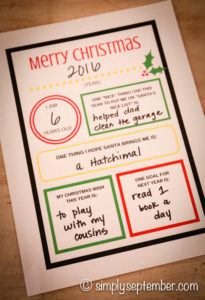 Merry Christmas
2016
(YEAR)
I AM
6
YEARS OLD
ONE "NICE" THING I DID THIS
YEAR TO PUT ME ON "SANTA'S
NICE LIST" IS
helped dad
clean the garage
ONE THING I HOPE SANTA BRINGS ME IS:
a Hatchimal
MY CHRISTMAS WISH
THIS YEAR IS:
to play
with my
cousins
ONE GOAL FOR
NEXT YEAR IS:
read 1
book a
day
© simplyseptember.com